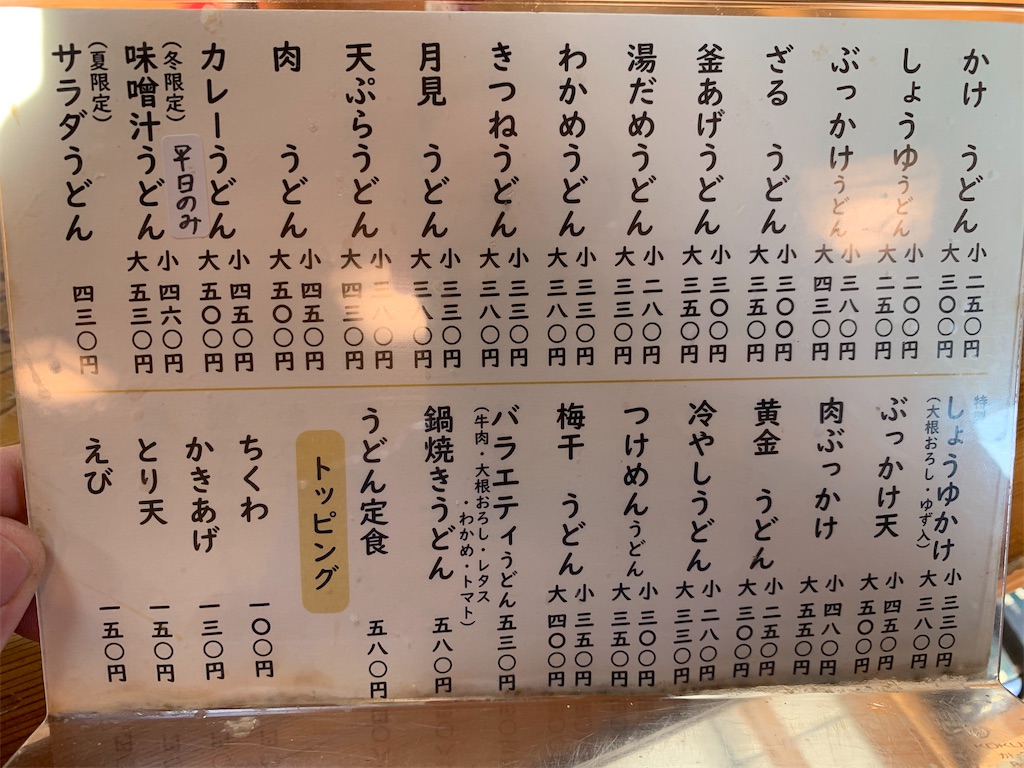 かけ うどん
小 二五〇円
大 三〇〇円
しょうゆうどん
小 二〇〇円
大 二五〇円
ぶっかけうどん
小 三八〇円
大 四三〇円
ざる うどん
小 三〇〇円
大 三五〇円
釜あげうどん
小 三〇〇円
大 三五〇円
湯だめうどん
小 二八〇円
大 三三〇円
わかめうどん
小 三三〇円
大 三八〇円
きつねうどん
小 三三〇円
大 三八〇円
月見 うどん
小 三三〇円
大 三八〇円
天ぷらうどん
小 三八〇円
大 四三〇円
肉 うどん
小 四五〇円
大 五〇〇円
カレーうどん
小 四五〇円
大 五〇〇円
平日のみ
(冬限定)
味噌汁うどん
小 四六〇円
大 五三〇円
(夏限定)
サラダうどん
四三〇円
しょうゆかけ
(大根おろし・ゆず入)
小 三三〇円
大 三八〇円
ぶっかけ天
小 四五〇円
大 五〇〇円
肉ぶっかけ
小 四八〇円
大 五五〇円
黄金 うどん
小 二五〇円
大 三〇〇円
冷やしうどん
小 二八〇円
大 三三〇円
つけめんうどん
小 三〇〇円
大 三五〇円
梅干 うどん
小 三五〇円
大 四〇〇円
バラエティうどん 五三〇円
(牛肉・大根おろし・レタス
・わかめ・トマト)
鍋焼きうどん 五八〇円
うどん定食 五八〇円
トッピング
ちくわ 一〇〇円
かきあげ 一三〇円
とり天 一五〇円
えび 一五〇円